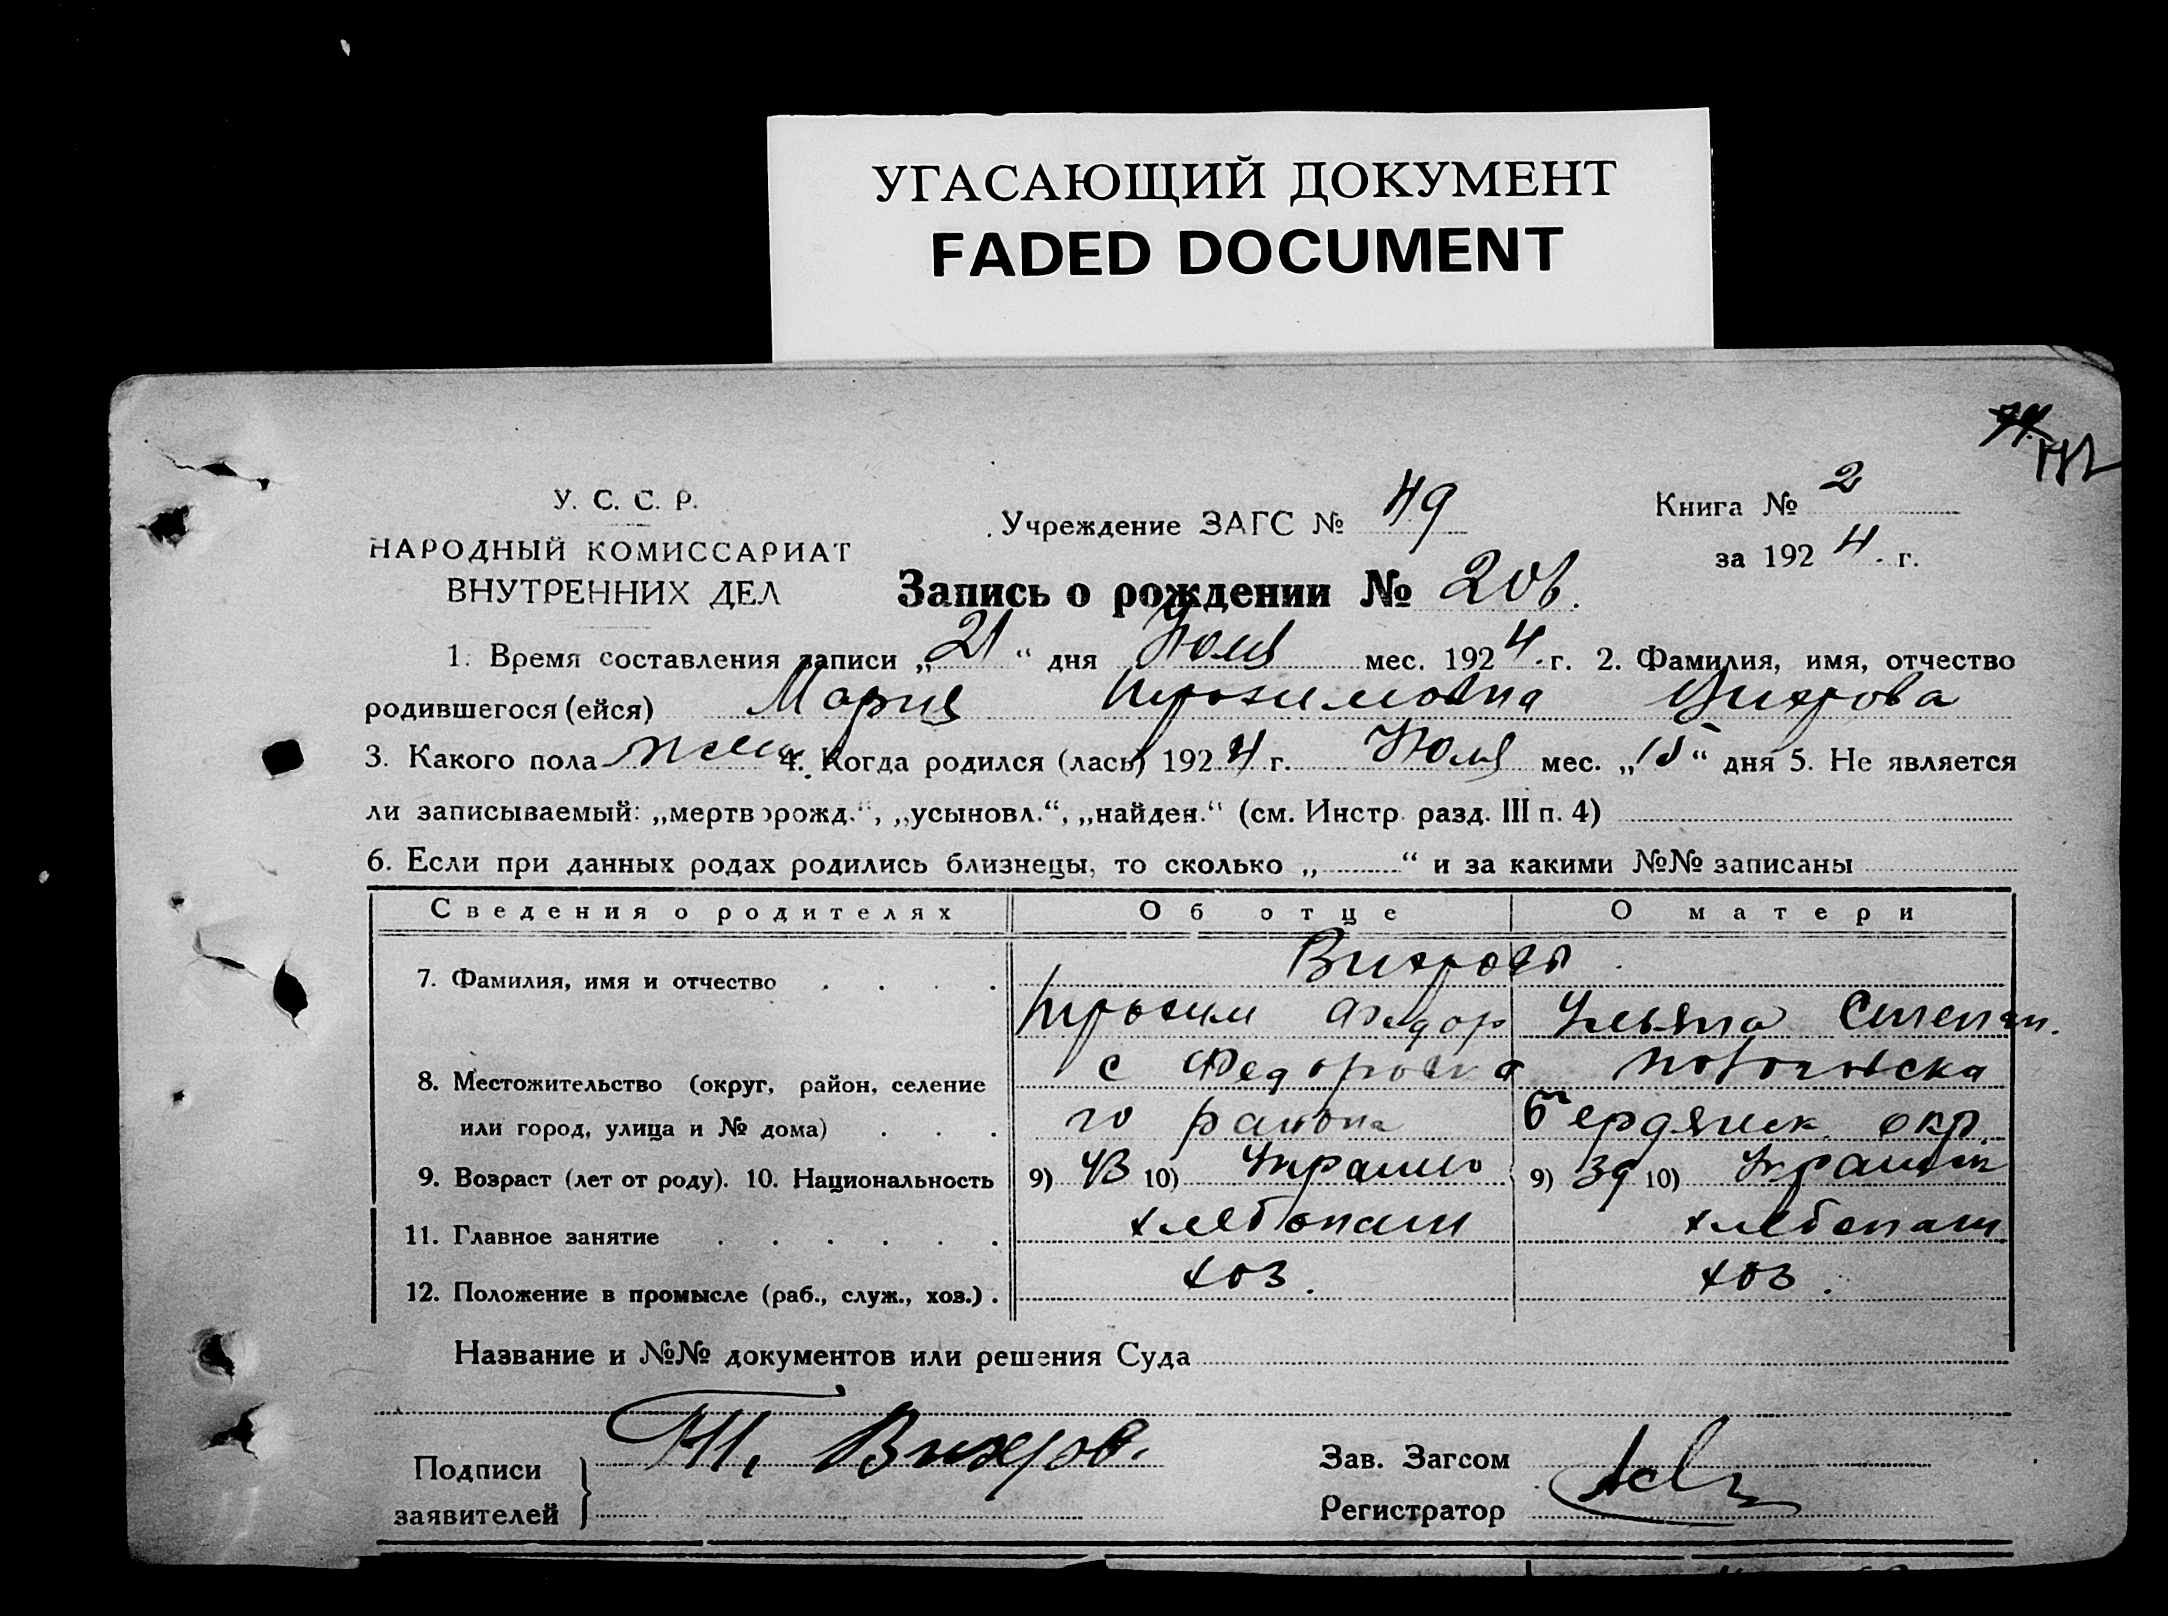 УГАСАЮЩИЙ ДОКУМЕНТ
FADED DOCUMENT
У. С. С. Р.
НАРОДНЫЙ КОМИССАРИАТ
ВНУТРЕННИХ ДЕЛ
Учреждение ЗАГС № 49
Книга № 2
за 1924 г.
Запись о рождении № 206.
1. Время составления записи „21“ дня Июля мес. 1924 г. 2. Фамилия, имя, отчество
родившегося (ейся) Мария Трохимовна Вихрова
3. Какого пола жен. 4. Когда родился (лась) 1924 г. Июля мес. „15“ дня 5. Не является
ли записываемый: „мертворожд.“, „усыновл.“, „найден.“ (см. Инстр. разд. III п. 4)
6. Если при данных родах родились близнецы, то сколько „ “ и за какими №№ записаны
Сведения о родителях Об отце О матери
7. Фамилия, имя и отчество Вихровы
Трохим Федор Ульяна Степан.
8. Местожительство (округ, район, селение с Федоровка
или город, улица и № дома) го района Бердянск. окр.
9. Возраст (лет от роду). 10. Национальность 9) 43 10) 9) 39 10)
11. Главное занятие хлебопаш хлебопаш
12. Положение в промысле (раб., служ., хоз.) хоз. хоз.
Название и №№ документов или решения Суда
Подписи
заявителей
Т. Вихров.
Зав. Загсом
Регистратор